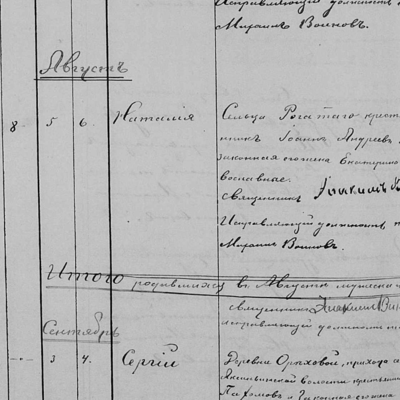 Исправляющий должность
Михаил Воинов.
Августъ
8. 5 6. Наталія Сельца Рогатаго крест
никъ Іоанн Андреев
законная его жена Екатерина
вославные.
Священник Іоакимъ
Исправляющий должность
Михаил Воинов.
Итого родившихся в Августе мужеска
священник Іоакимъ
исправляющий должность
Сентябрь
3 4. Сергій Деревни Ореховой, прихода
волости крестьян
законная